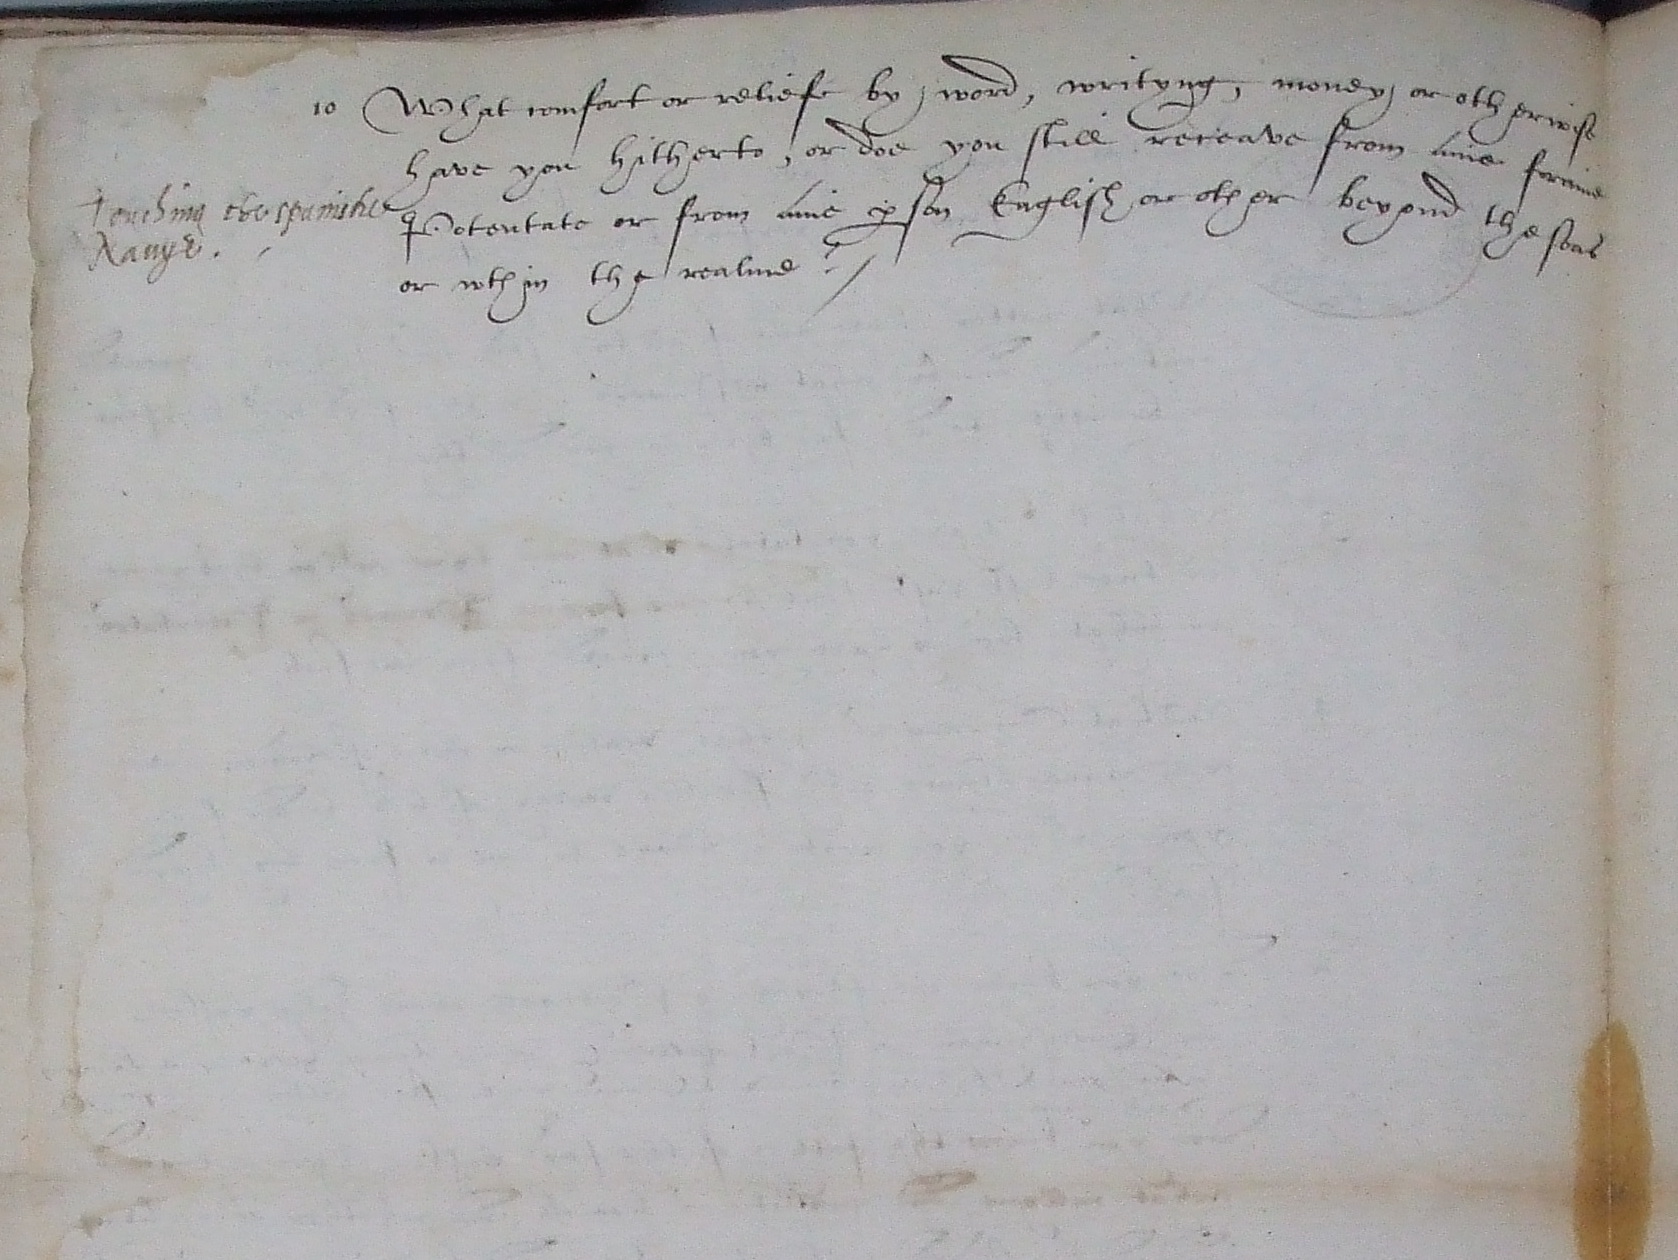 10 What comfort or reliefe by word, writyng, money, or otherwise
have you hitherto, or doe you still receave from anie forraine
Touching the spanishe
Potentate or from anie pson English or other beyond the seas
Navye.
or wthin the realme?